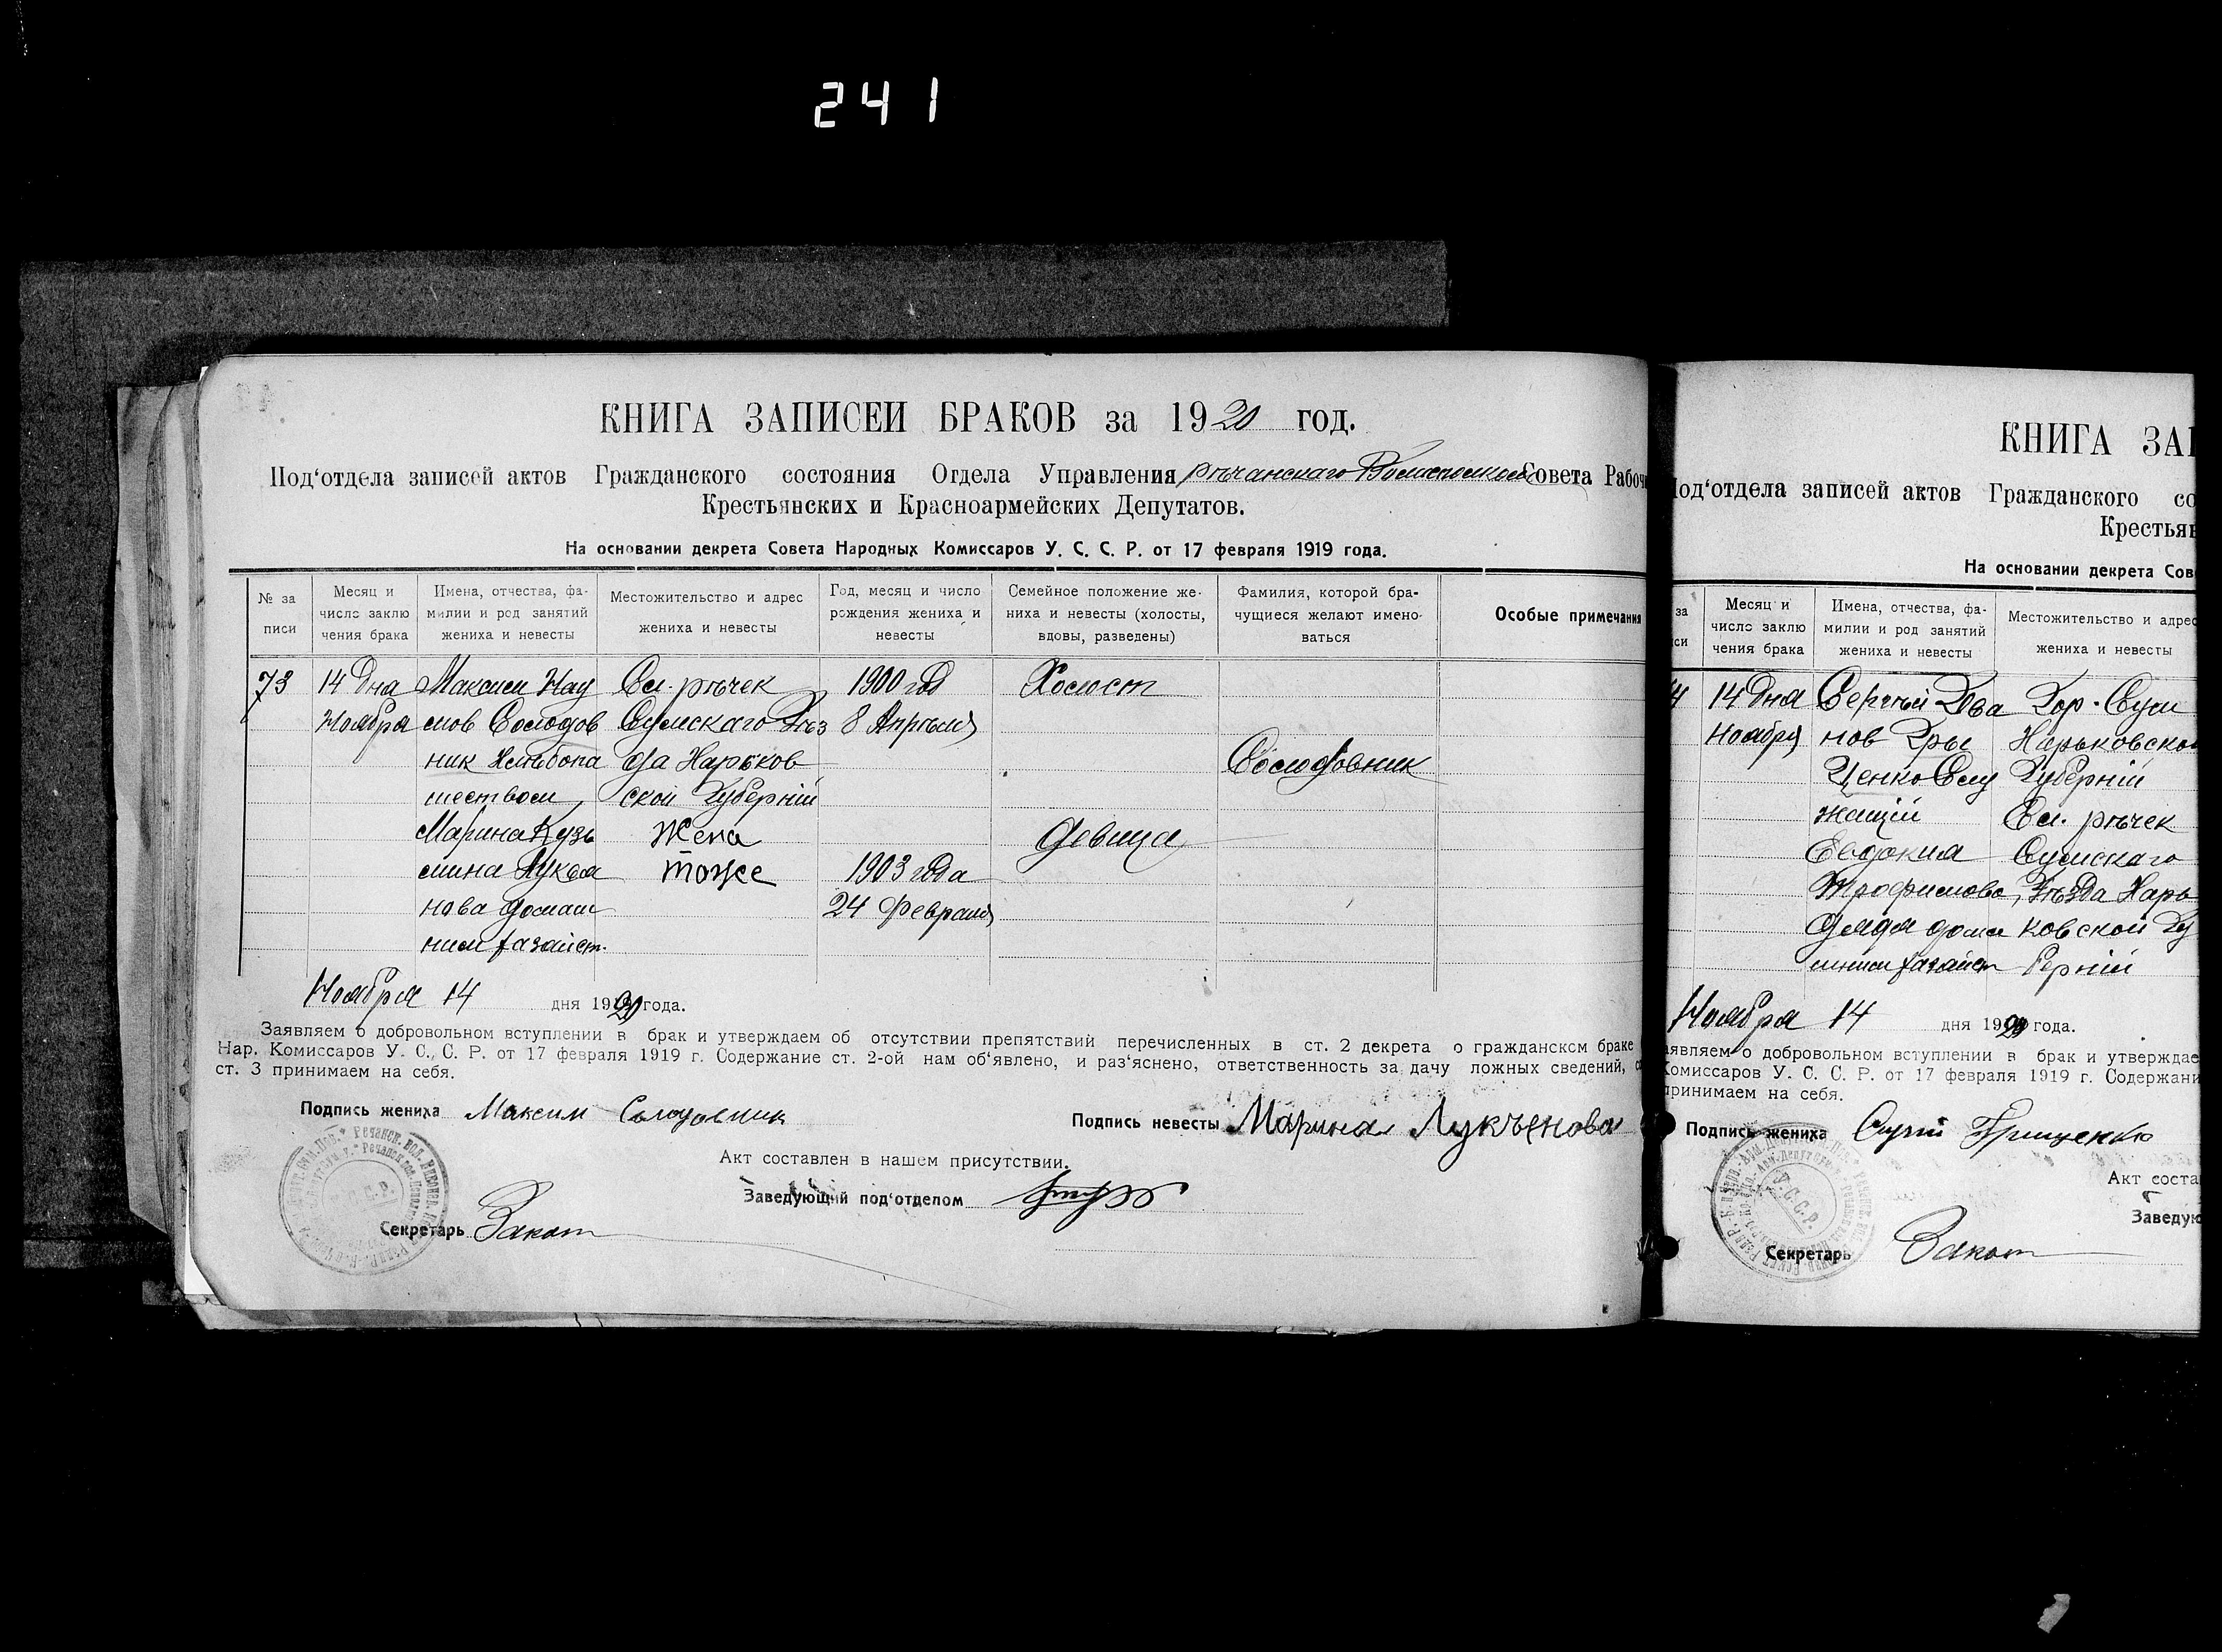 241
КНИГА ЗАПИСЕЙ БРАКОВ за 1920 год.
Под‘отдела записей актов Гражданского состояния Отдела Управления Рѣчанскаго Волостного Совета Рабоч
Крестьянских и Красноармейских Депутатов.
На основании декрета Совета Народных Комиссаров У. С. С. Р. от 17 февраля 1919 года.
№ за писи
Месяц и число заклю чения брака
Имена, отчества, фа- милии и род занятий жениха и невесты
Местожительство и адрес жениха и невесты
Год, месяц и число рождения жениха и невесты
Семейное положение же- ниха и невесты (холосты, вдовы, разведены)
Фамилия, которой бра- чущиеся желают имено- ваться
Особые примечания
73 14 Дня Максим Нау Сл. рѣчек 1900 год Холост
Ноября мов Солодов Сумскаго Уѣз 8 Апрѣля
ник Хлѣбопа да Харьков Солодовник
шеством ской Губерніи
Марина Кузь Жена девица
мина Лукья тоже 1903 года
нова домаш 24 Февраля
ним хазайст.
Ноября 14 дня 1920 года.
Заявляем о добровольном вступлении в брак и утверждаем об отсутствии препятствий перечисленных в ст. 2 декрета о гражданском браке
Нар. Комиссаров У. С. С. Р. от 17 февраля 1919 г. Содержание ст. 2-ой нам об‘явлено, и раз‘яснено, ответственность за дачу ложных сведений,
ст. 3 принимаем на себя.
Подпись жениха Максим Солодовник
Подпись невесты Марина Лукъенова
Акт составлен в нашем присутствии.
Заведующий под‘отделом
Секретарь Закот
КНИГА ЗАП
Под‘отдела записей актов Гражданского со
Крестьян
На основании декрета Сов
за си
Месяц и число заклю чения брака
Имена, отчества, фа- милии и род занятий жениха и невесты
Местожительство и адрес жениха и невесты
4 14 Дня Сергѣй Ива Гор. Сум
Ноября нов Гры Харьковской
ценко Слу Губерніи
жащій Сл. рѣчек
Евдокия Сумскаго
Трофимова Уѣзда Харь
дома ковской Гу
шним хазайст берніи
Ноября 14 дня 1920 года.
аявляем о добровольном вступлении в брак и утверждае
Комиссаров У. С. С. Р. от 17 февраля 1919 г. Содержани
принимаем на себя.
Подпись жениха Сергій Грищенко
Акт соста
Заведую
Секретарь Закот